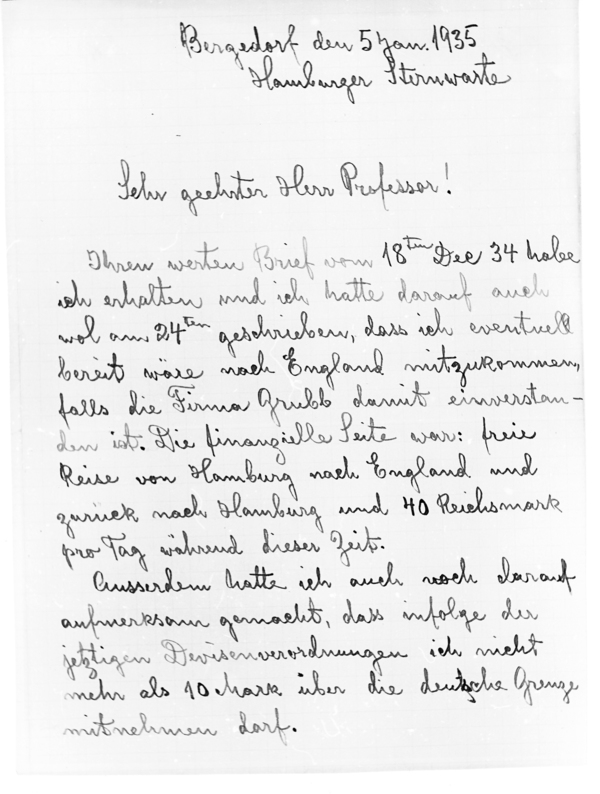 Bergedorf den 5 Jan. 1935
Hamburger Sternwarte
Sehr geehrter Herr Professor!
Ihren werten Brief vom 18ten Dec 34 habe
ich erhalten und ich hatte darauf auch
wol am 24ten geschrieben, dass ich eventuell
bereit wäre nach England mitzukommen,
falls die Firma Grubb damit einverstan-
den ist. Die finanzielle Seite war: freie
Reise von Hamburg nach England und
zurück nach Hamburg und 40 Reichsmark
pro Tag während dieser Zeit.
Ausserdem hatte ich auch noch darauf
aufmerksam gemacht, dass infolge der
jetztigen Devisenverordnungen ich nicht
mehr als 10 Mark über die deutsche Grenze
mitnehmen darf.